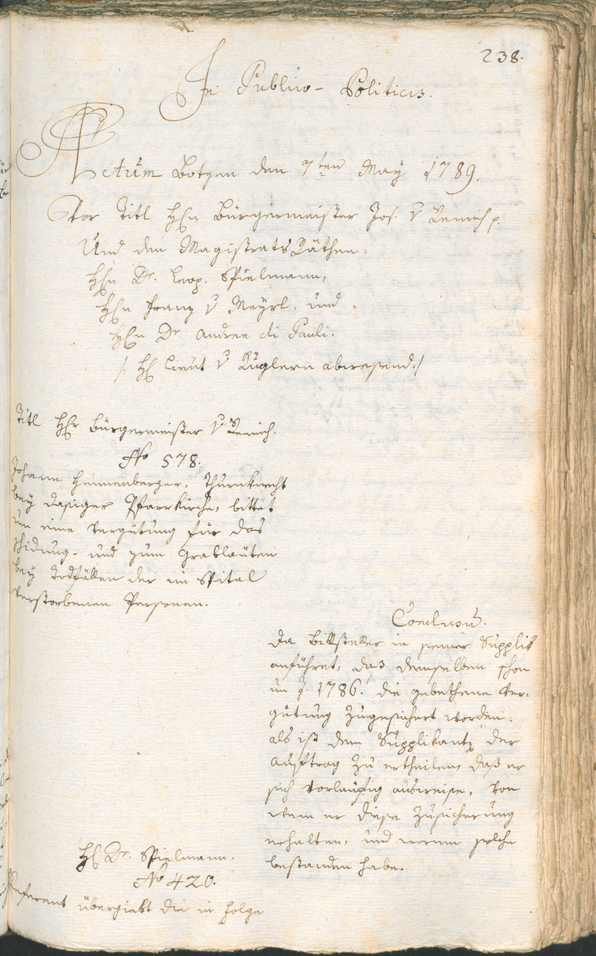 238.
In Publico-Politicis.
Actum Botzen den 7ten May 1789.
Vor Titl Hhn Bürgermeister Jos. v
Und den Magistrats Räthen:
Hhn Dr. Leop. Spielmann,
Hhn Franz v Mayrl, und
Hhn Dr Andree di Pauli.
/: H Lieut v Küglern abwesend :/
Titl Hhr Bürgermeister v
No 578.
Johann Hennenberger, Thurnknecht
bey dasiger Pfarrkirche, bittet
um eine Vergütung für das
Schidung- und zum Grabläuten
bey Todfällen der im Spital
verstorbenen Personen.
Conclusu.
Da Bittsteller in seiner Supplik
anführet, daß demselben schon
im J. 1786. die gebethene Ver-
gütung zugesichert worden.
als ist dem Supplikantz der
Auftrag zu ertheilen, daß er
sich vorläufig ausweise, von
wem er diese Zusicherung
erhalten, und worinn solche
bestanden habe.
H Dr. Spielmann.
No 420.
Referent übergiebt die in Folge